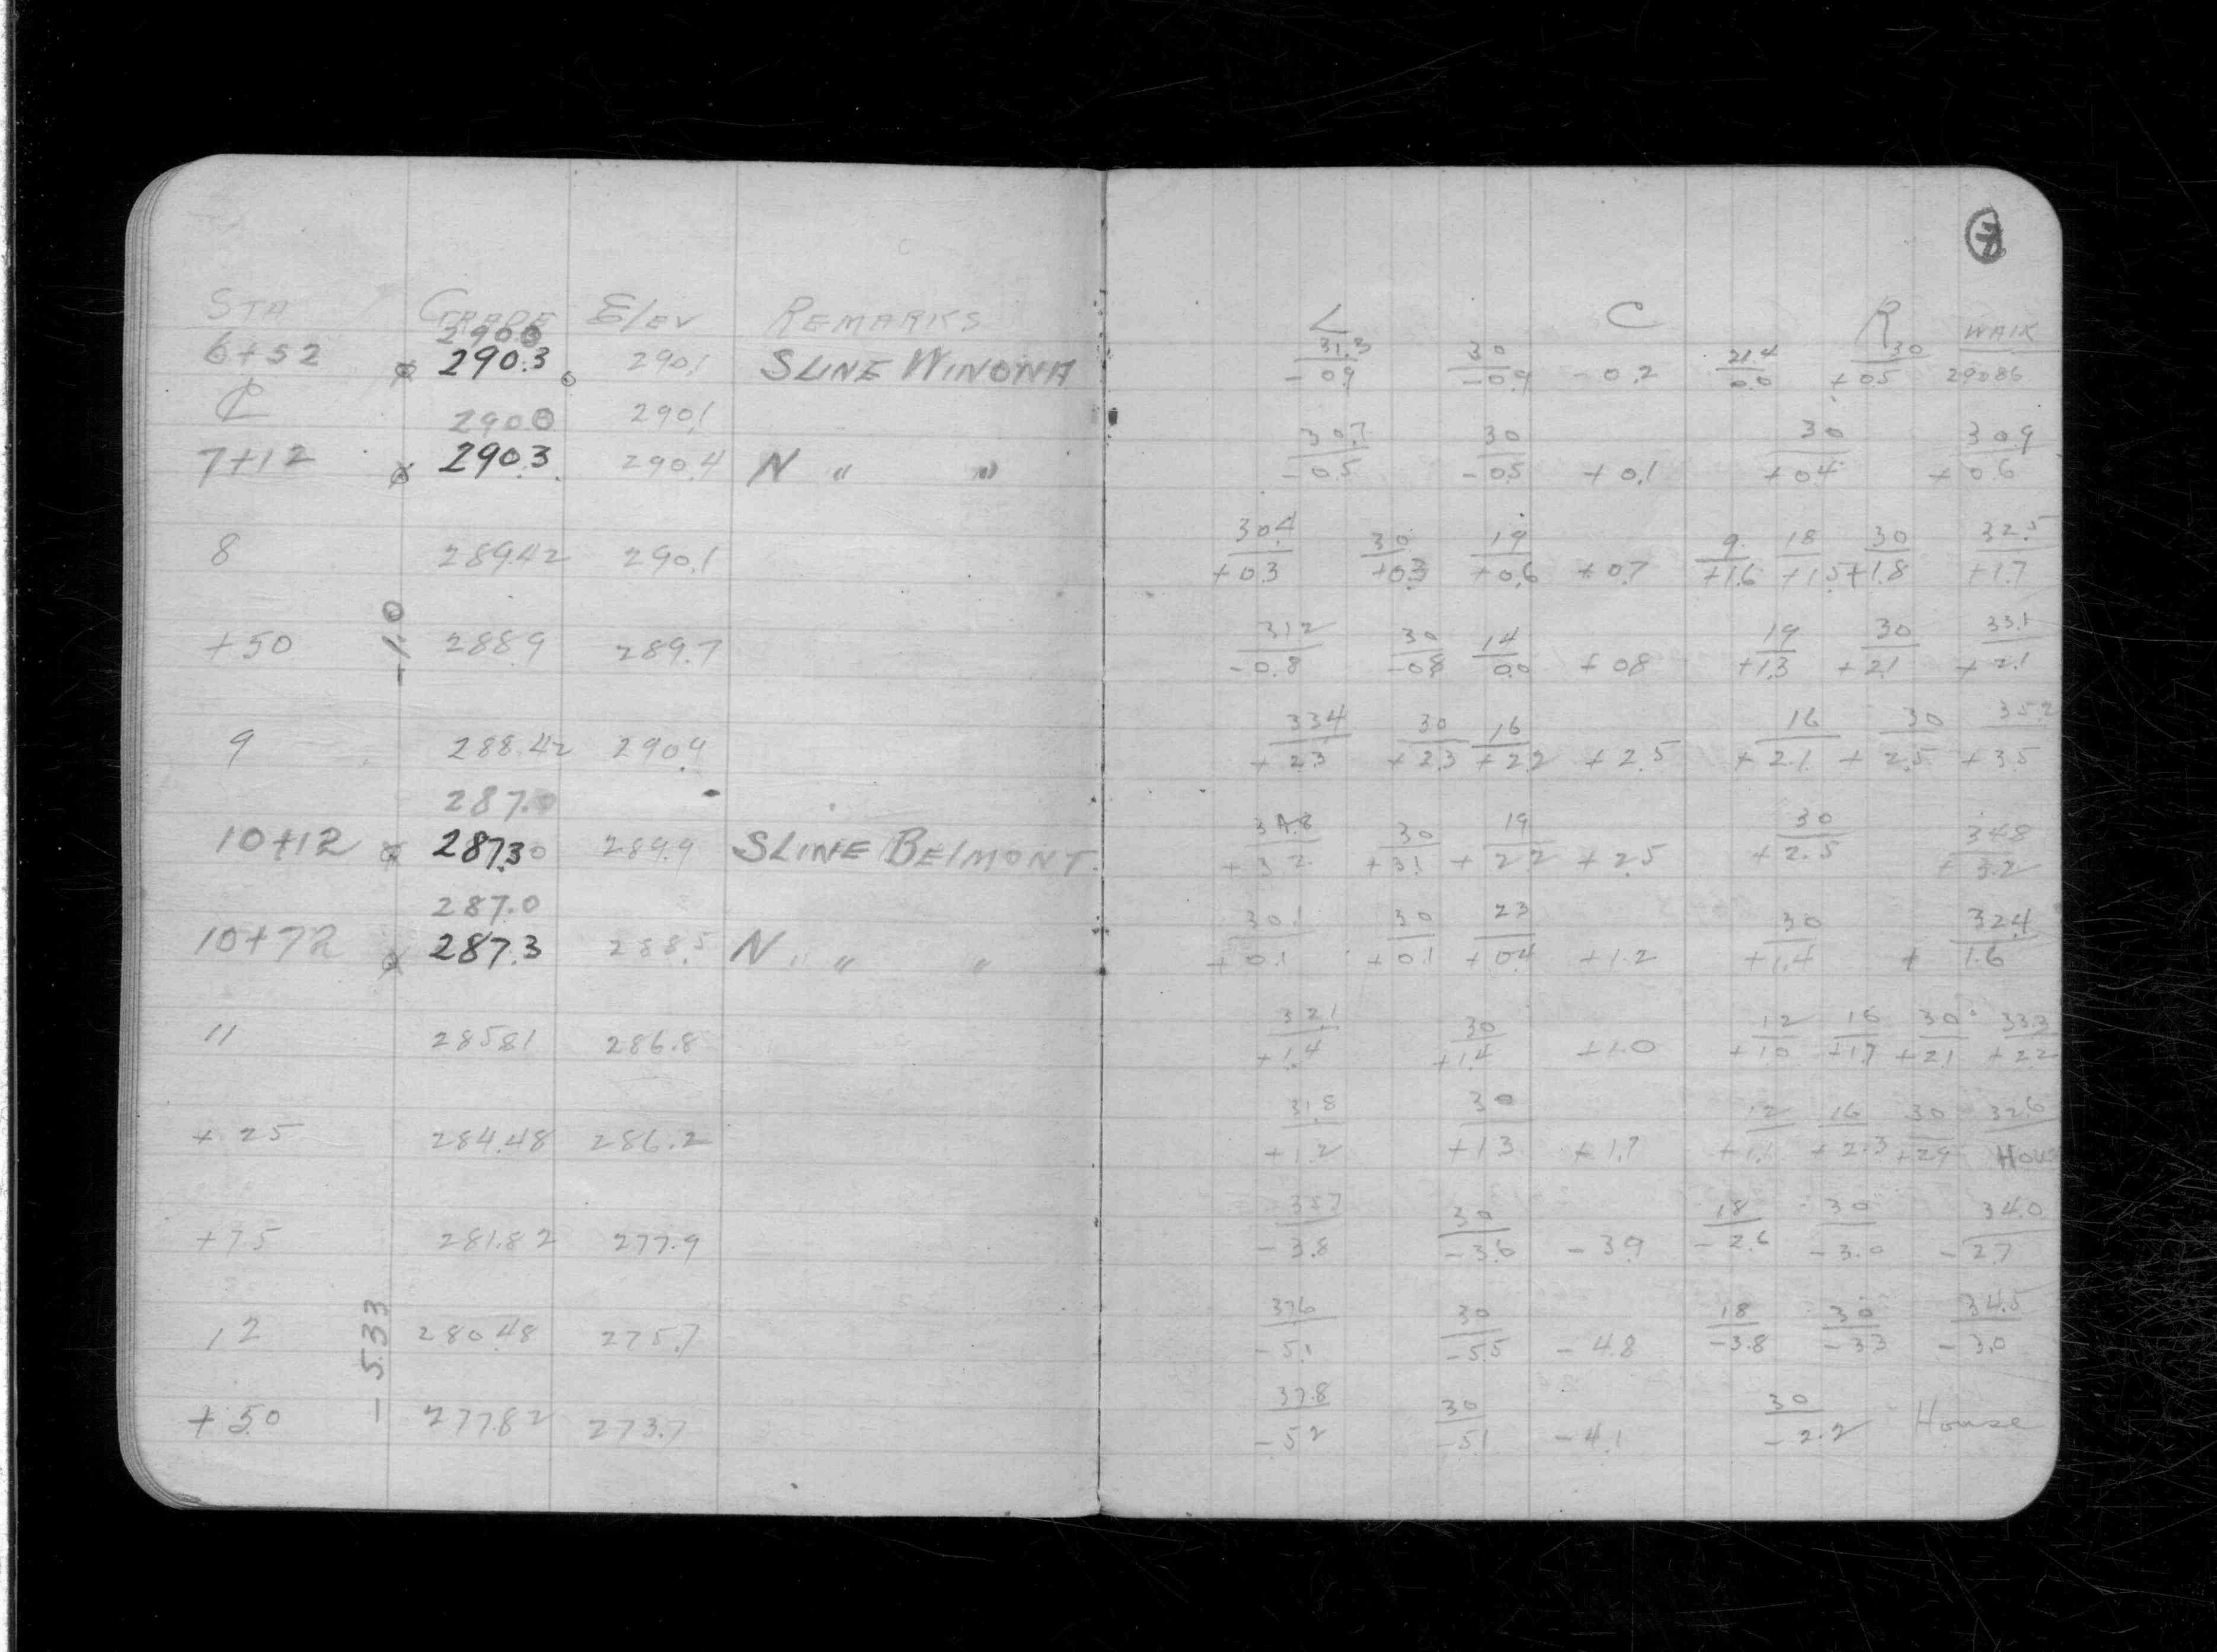 7
STA GRADE Elev REMARKS L C R WALK
290.0 31.3 30 21.4 30
6+52 290.3 290.1 SLINE WINONA -0.9 -0.9 -0.2 0.0 +0.5 290.86
℄ 290.0 290.1
30.7 30 30 30.9
7+12 290.3 290.4 N " " -0.5 -0.5 +0.1 +0.4 +0.6
30.4 30 19 9 18 30 32.5
8 289.42 290.1 +0.3 +0.3 +0.6 +0.7 +1.6 +1.5 +1.8 +1.7
-1.0
31.2 30 14 19 30 33.1
+50 288.9 289.7 -0.8 -0.8 0.0 +0.8 +1.3 +2.1 +2.1
33.4 30 16 16 30 35.2
9 288.42 290.9 +2.3 +2.3 +2.2 +2.5 +2.1 +2.5 +3.5
287.0
34.8 30 19 30 34.8
10+12 287.30 289.9 SLINE BElMONT +3.2 +3.1 +2.2 +2.5 +2.5 +3.2
287.0
30.1 30 23 30 32.4
10+72 287.3 288.5 N " " " +0.1 +0.1 +0.4 +1.2 +1.4 +1.6
32.1 30 12 16 30 33.3
11 285.81 286.8 +1.4 +1.4 +1.0 +1.0 +1.7 +2.1 +2.2
31.8 30 12 16 30 32.6
+25 284.48 286.2 +1.2 +1.3 +1.7 +1.1 +2.3 +2.9 Hous
35.7 30 18 30 34.0
+75 281.82 277.9 -3.8 -3.6 -3.9 -2.6 -3.0 -2.7
37.6 30 18 30 34.5
12 280.48 275.7 -5.1 -5.5 -4.8 -3.8 -3.3 -3.0
-5.33
37.8 30 30
+50 277.82 273.7 -5.2 -5.1 -4.1 -2.2 House